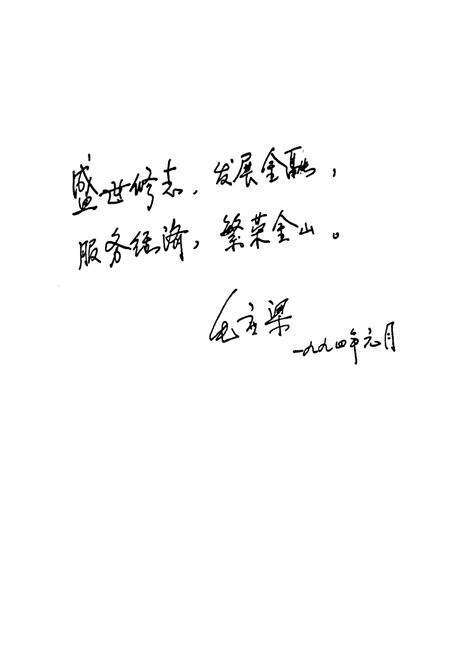 盛世修志，发展金融，
服务经济，繁荣金山。
梁
一九九四年元月